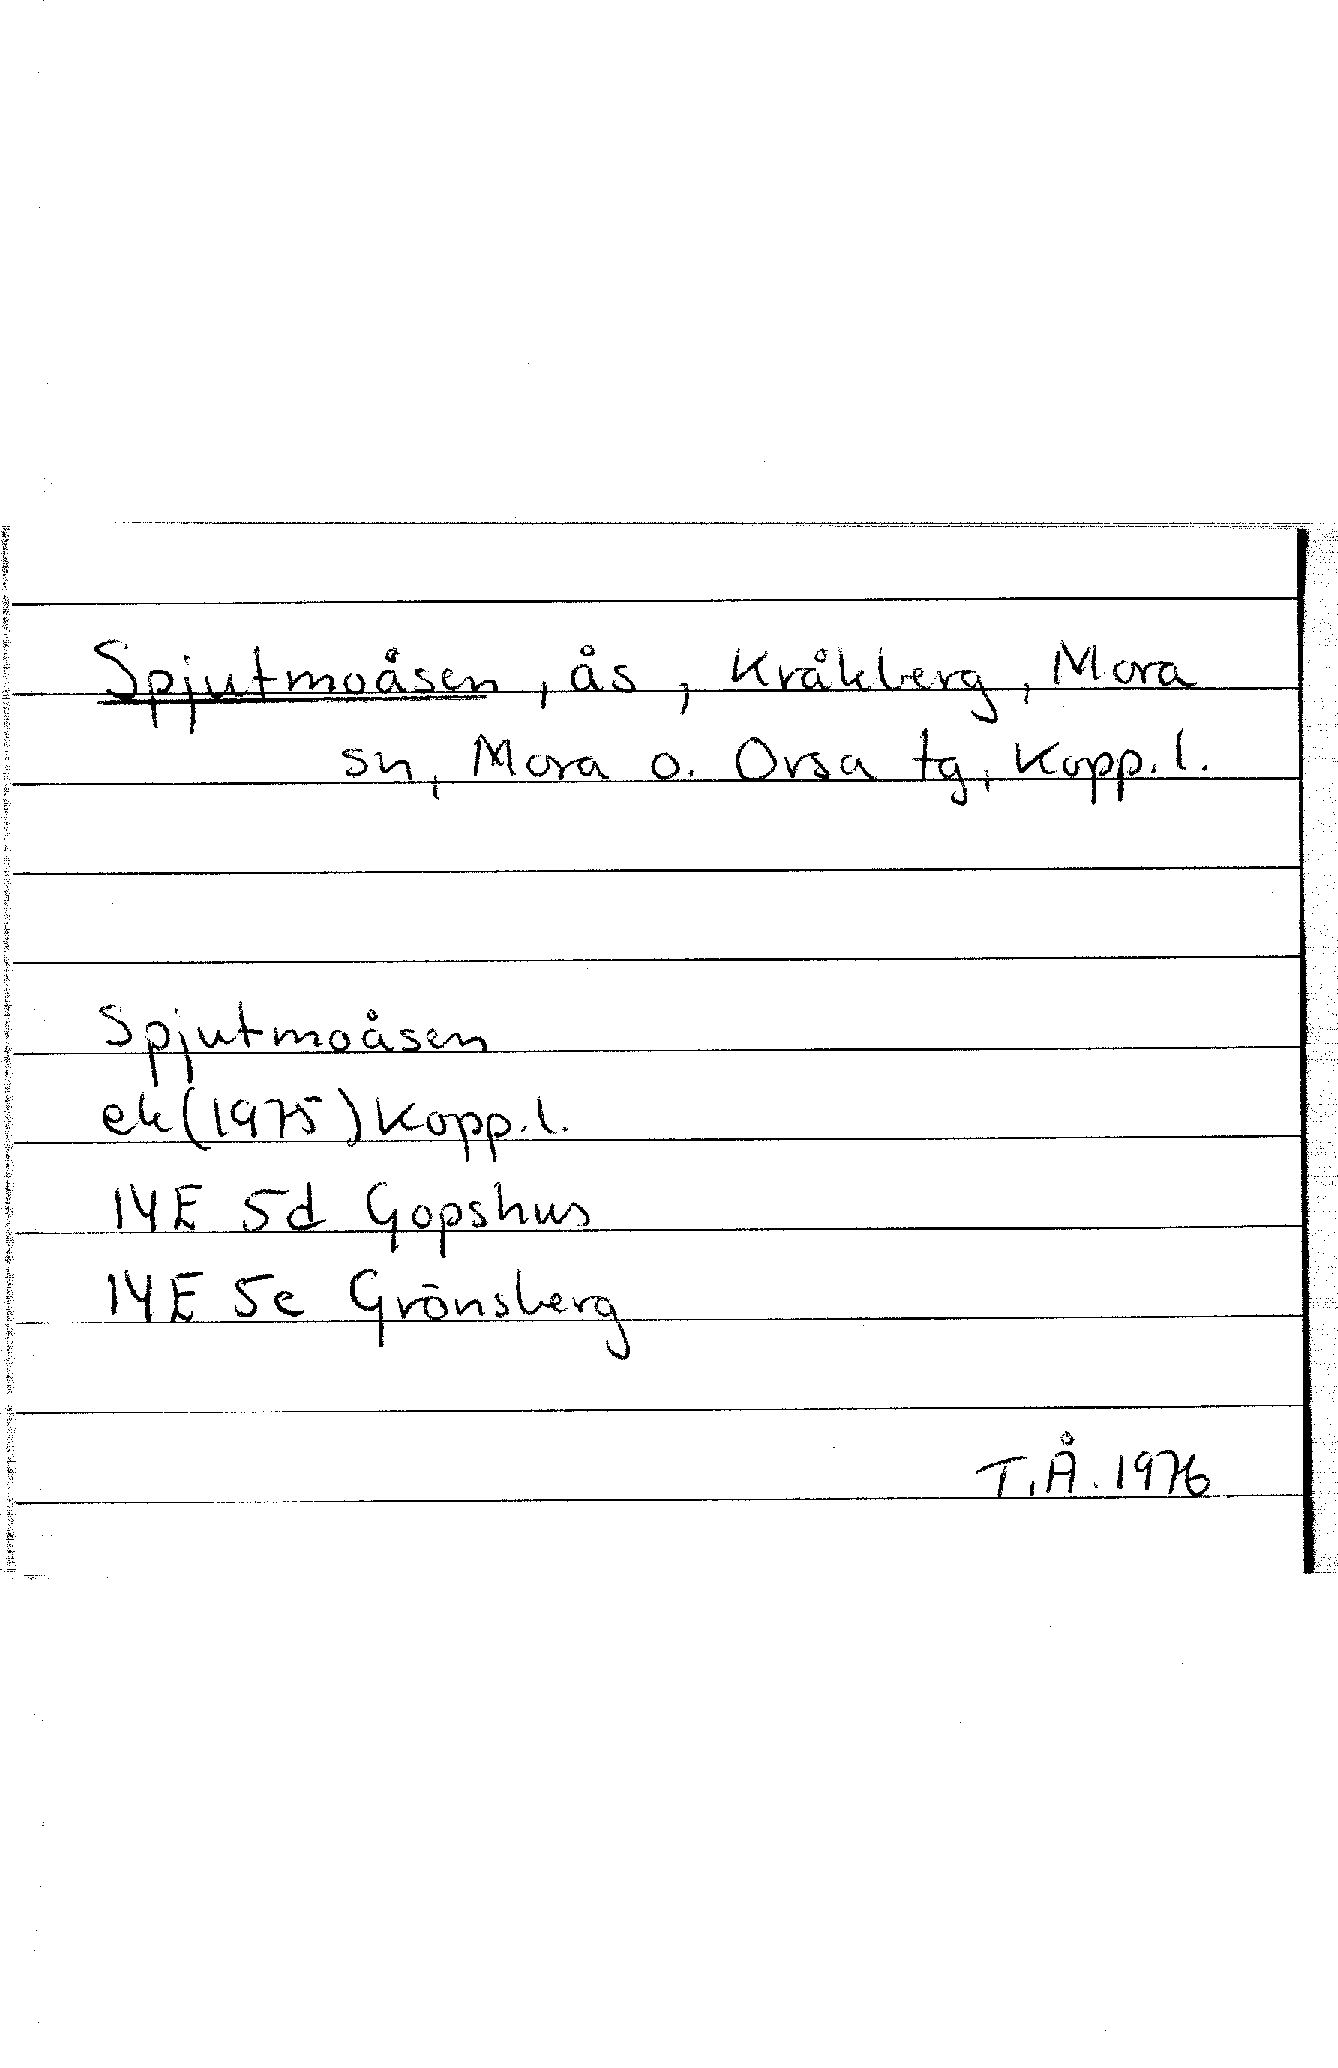 Spjutmoåsen, ås, Kråkberg, Mora
sn, Mora o. Orsa tg, Kopp.l.
Spjutmoåsen
ek(1975) Kopp.l.
14E 5d Gopshus
14E 5e Grönsberg
T.Å. 1976